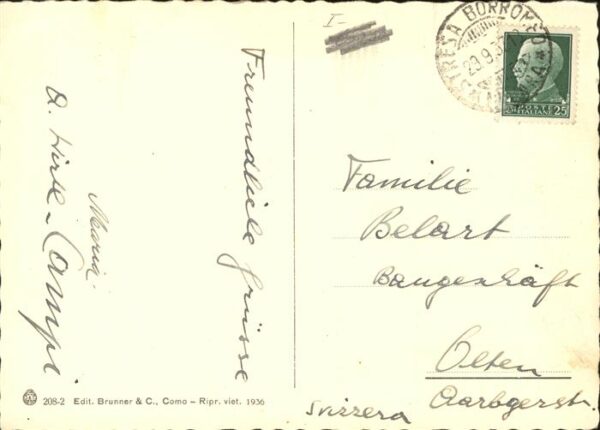 I-
STRESA BORROMEO
POSTE
ITALIANE
25
Freundliche Grüsse
Maria
Campi
Familie
Belart
Baugeschäft
Olten
Aarbgerstr.
Svizzera
208-2 Edit. Brunner & C., Como – Ripr. viet. 1936